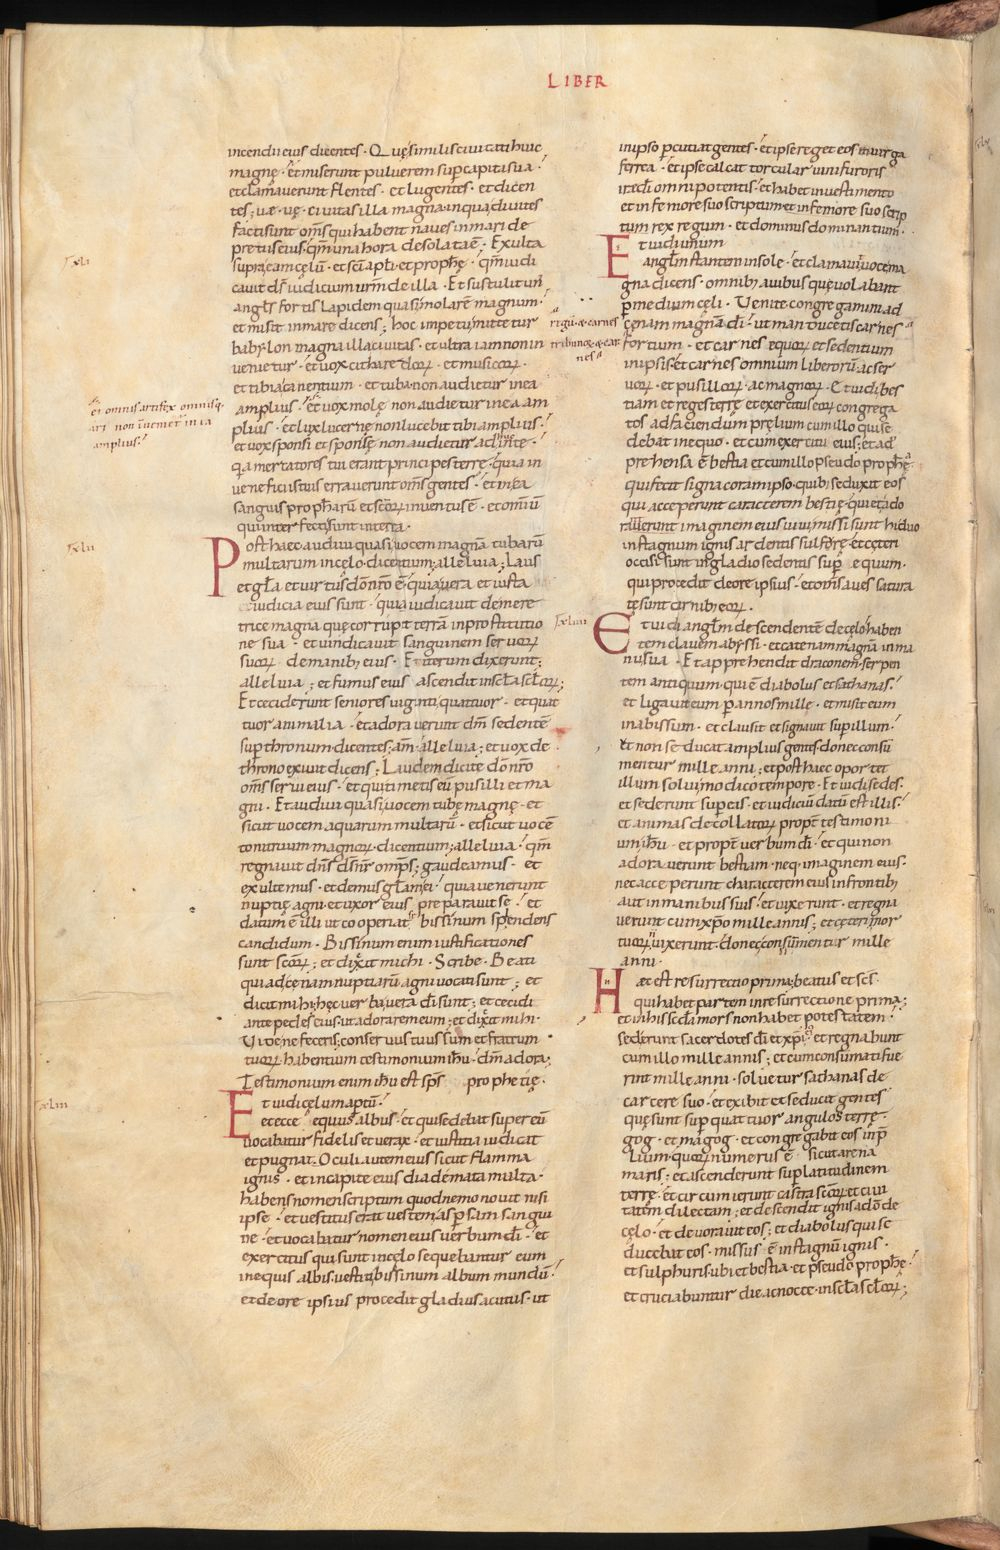 LIBER
incendii eius dicentes · Quę similis ciuitati huic
magnę · et miserunt puluerem sup capita sua ·
et clamauerunt flentes · et lugentes · et dicen
tes; uę · uę · ciuitas illa magna in qua diuites
facti sunt om̄s qui habent naues in mari de
pretiis eius · qm̄ una hora desolata ē · Exulta
sup eam cęlū · et sc̄i apl̄i · et prophę · qm̄ iudi
cauit d̄s iudicium ur̄m de illa · Et sustulit un̄
angl̄s fortis lapidem quasi molarē magnum ·
et misit in mare dicens; hoc impetu mittetur
babylon magna illa ciuitas · et ultra iam non in
uenietur · et uox citharedorꝝ · et musicorꝝ ·
et tibia canentium · et tuba non audietur in ea
amplius · et uox molę non audietur in ea am
plius · et lux lucernę non lucebit tibi amplius ·
et uox sponsi et sponsę non audietur adhuc in te ·
qa mercatores tui erant principes terrę · quia in
ueneficiis tuis errauerunt om̄s gentes · et in ea
sanguis prophārū et sc̄orꝝ inuentus ē · et omniū
qui interfecti sunt in terra ·
xli
et omnis artifex omnisq·
arti non inuenietr in ea
amplius ·
xlii
Post haec audiui quasi uocem magnā tubarū
multarum in cęlo · dicentium; alleluia; Laus
et gl̄a et uirtus d̄o nr̄o ē · quia uera et iusta
iudicia eius sunt · quia iudicauit de mere
trice magna quę corrupit terrā in prostitutio
ne sua · et uindicauit sanguinem seruorꝝ
suorꝝ de manibꝫ eius · Et iterum dixerunt;
alleluia; et fumus eius ascendit in scl̄a scl̄orꝝ;
Et ceciderunt seniores uiginti quattuor · et quat
tuor animalia · et adorauerunt dm̄ sedentē
sup thronum dicentes; am̄ · alleluia; et uox de
throno exiuit dicens; Laudem dicite d̄o nr̄o
om̄s serui eius · et qui timetis eū pusilli et ma
gni · Et audiui quasi uocem tubę magnę · et
sicut uocem aquarum multarū · et sicut uocē
tonitruum magnorꝝ · dicentium; alleluia · qm̄
regnauit dn̄s d̄s nr̄ omp̄s; gaudeamus · et
exultemus · et demus gl̄am ei · quia uenerunt
nuptię agni · et uxor eius preparauit se · et
datum ē illi ut cooperiat se bissinum splendens
candidum · Bissinum enim iustificationes
sunt sc̄orꝝ; et dixit michi · Scribe · Beati
qui ad cenam nuptiarū agni uocati sunt; et
dicit mihi; hęc uerba uera d̄i sunt; et cecidi
ante pedes eius · ut adorarem eum; et dixit mihi ·
Vide ne feceris; conseruus tuus sum et fratrum
tuorꝝ habentium testimonium ih̄u · dm̄ adora;
Testimonium enim ih̄u est sp̄s prophetię ·
xliii
Et uidi cęlum aptū ·
et ecce equus albus · et qui sedebat super eū
uocabatur fidelis et uerax · et iustitia iudicat
et pugnat · Oculi autem eius sicut flamma
ignis · et in capite eius diademata multa ·
habens nomen scriptum quod nemo nouit nisi
ipse · et uestitus erat uestem aspsam sangui
ne · et uocabatur nomen eius uerbum d̄i · et
exercitus qui sunt in cęlo sequebantur eum
in equis albis · uestiti bissinum album mundū ·
et de ore ipsius procedit gladius acutus · ut
in ipso pcutiat gentes · et ipse reget eos in uirga
ferrea · et ipse calcat torcular uini furoris
irę d̄i omnipotentis · et habet in uestimento
et in femore suo scriptum et in femore suo scrip
tum rex regum · et dominus dominantium ·
Et uidi unum
angl̄m stantem in sole · et clamauit uoce ma
gna dicens · omnibꝫ auibus quę uolabant
p medium cęli · Venite congregamini ad
cęnam magnam d̄i · ut manducetis carnes
regū · & carnes
tribunorꝝ & car
nes
fortium · et carnes equorꝝ et sedentium
in ipsis et carnes omnium liberorū ac ser
uorꝝ · et pusillorꝝ · ac magnorꝝ · Et uidi bes
tiam et reges terrę et exercitus eorꝝ congrega
tos ad faciendum pręlium cum illo qui se
debat in equo · et cum exercitu eius; et ad
prehensa ē bestia et cum illo pseudo prophę ·
qui fecit signa coram ipso · quibꝫ seduxit eos
qui acceperunt caracterem bestię · qui et ado
rauerunt imaginem eius uiui missi sunt hi duo
in stagnum ignis ardentis sulfore · et ceteri
occisi sunt in gladio sedentis sup equum ·
qui procedit de ore ipsius · et om̄s aues satura
tę sunt carnibꝫ eorꝝ ·
xliiii
Et uidi angl̄m descendentē de cęlo haben
tem clauem abyssi · et catenam magnā in ma
nu sua · Et apprehendit draconem · serpen
tem antiquum · qui ē diabolus et sathanas ·
et ligauit eum p annos mille · et misit eum
in abissum · et clausit et signauit sup illum ·
ut non seducat amplius gentes donec consū
mentur mille anni; et post haec oportet
illum solui modico tempore · Et uidi sedes ·
et sederunt sup eis · et iudiciū datū est illis ·
et animas decollatorꝝ propt̄ testimoni
um ih̄u · et propt̄ uerbum d̄i · et qui non
adorauerunt bestiam · neqꝫ imaginem eius ·
nec acceperunt characterem eius in frontibꝫ
aut in manibus suis · et uixerunt · et regna
uerunt cum xp̄o mille annis; et ceteri mor
tuorꝝ non uixerunt · donec consūmentur mille
anni ·
Hęc est resurrectio prima; beatus et sc̄s ·
qui habet partem in resurrectione prima;
et in his scd̄a mors non habet potestatem ·
sed erunt sacerdotes d̄i et xp̄i · et regnabunt
cum illo mille annis; et cum consumati fue
rint mille anni · soluetur sathanas de
carcere suo · et exibit et seducit gentes
quę sunt sup quattuor angulos terrę ·
gog · et magog · et congregabit eos in p̄
lium · quorꝝ numerus ē sicut arena
maris; et ascenderunt sup latitudinem
terrę · et circumierunt castra sc̄orꝝ et ciui
tatem dilectam; et descendit ignis a d̄o de
cęlo · et deuorauit eos; et diabolus qui se
ducebat eos · missus ē in stagnū ignis ·
et sulphuris · ubi et bestia · et pseudo prophę ·
et cruciabuntur die ac nocte · in scl̄a scl̄orꝝ;